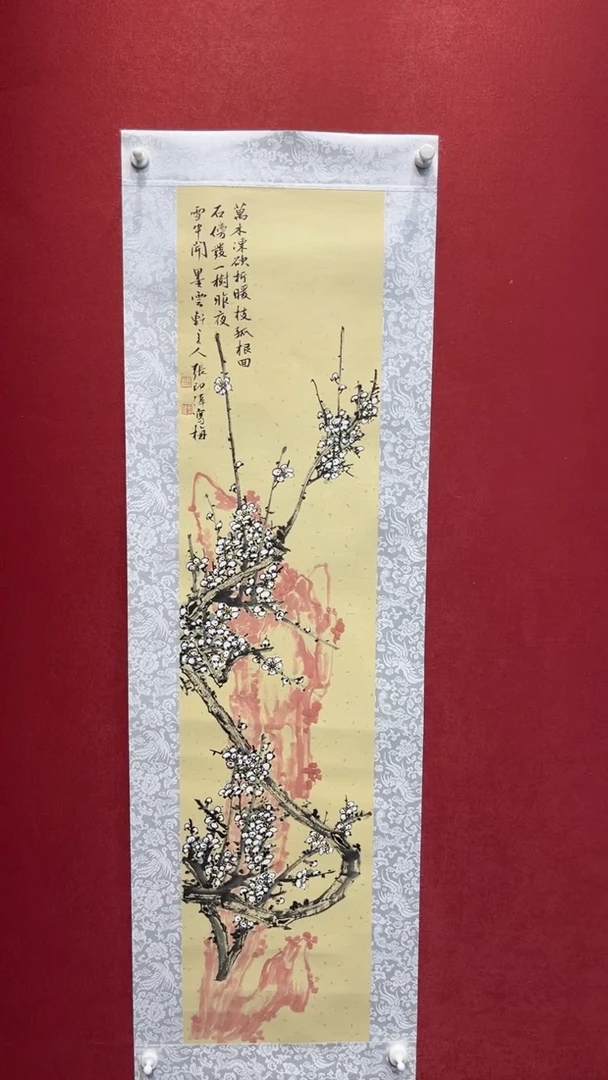 萬木凍欲折暖枝孤根回
石傍發一樹昨夜
雪中開 墨雲軒主人 張寫梅